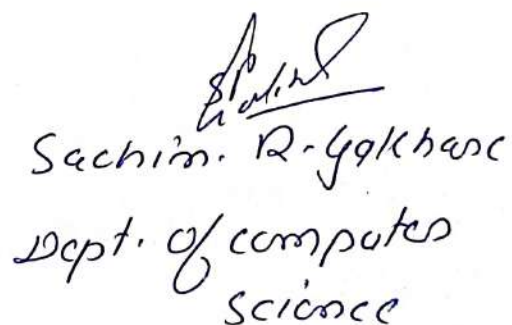 Sachin. R. Gakhare
Dept. of computer
science